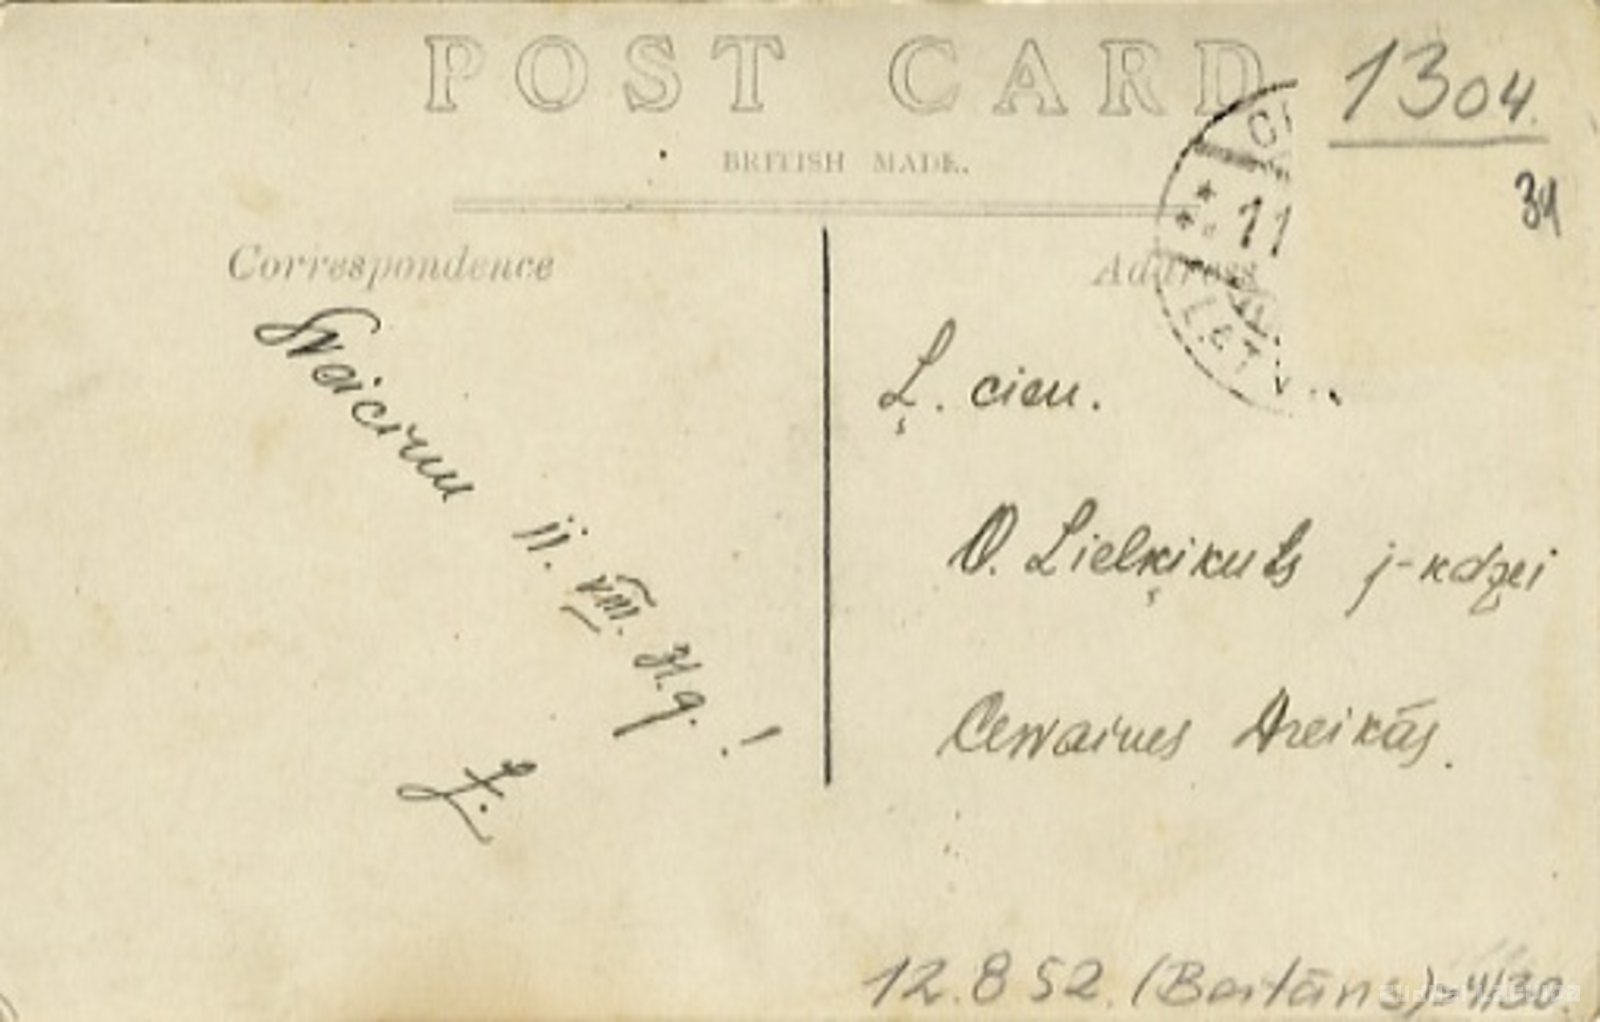 POST CARD
BRITISH MADE.
1304.
31
11
LATV
Correspondence
Address
Sveicinu 11. VIII. 31. g. !
Ļ. cien.
O. Lielķikuts j-kdzei
Cesvaines Dzeikās.
12.8 52. (Bertāns)